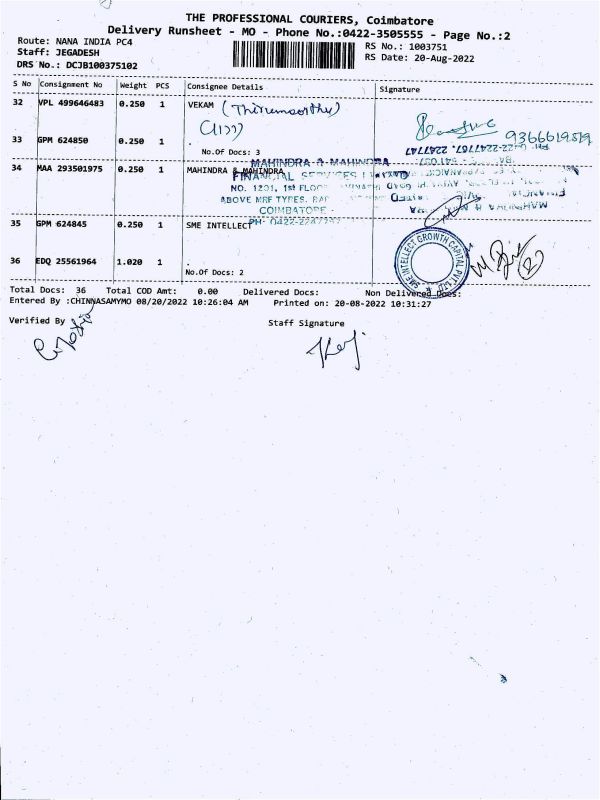 THE PROFESSIONAL COURIERS, Coimbatore
Delivery Runsheet - MO - Phone No.:0422-3505555 - Page No.:2
Route: NANA INDIA PC4
RS No.: 1003751
Staff: JEGADESH
RS Date: 20-Aug-2022
DRS No.: DCJB100375102
S No Consignment No Weight PCS Consignee Details Signature
32 VPL 499646483 0.250 1 VEKAM (Thirumoorthy)
9366619519
33 GPM 624850 0.250 1 .
No.Of Docs: 3
MAHINDRA & MAHINDRA
34 MAA 293501975 0.250 1 MAHINDRA & MAHINDRA
FINANCIAL SERVICES
NO. 1201, 1st FLOOR
ABOVE MRF TYRES.
COIMBATORE -
PH: 0422-2247747
35 GPM 624845 0.250 1 SME INTELLECT
SME INTELLECT GROWTH CAPITAL PVT LTD
36 EDQ 25561964 1.020 1 .
No.Of Docs: 2
Total Docs: 36 Total COD Amt: 0.00 Delivered Docs: Non Delivered Docs:
Entered By :CHINNASAMYMO 08/20/2022 10:26:04 AM Printed on: 20-08-2022 10:31:27
Verified By
Staff Signature